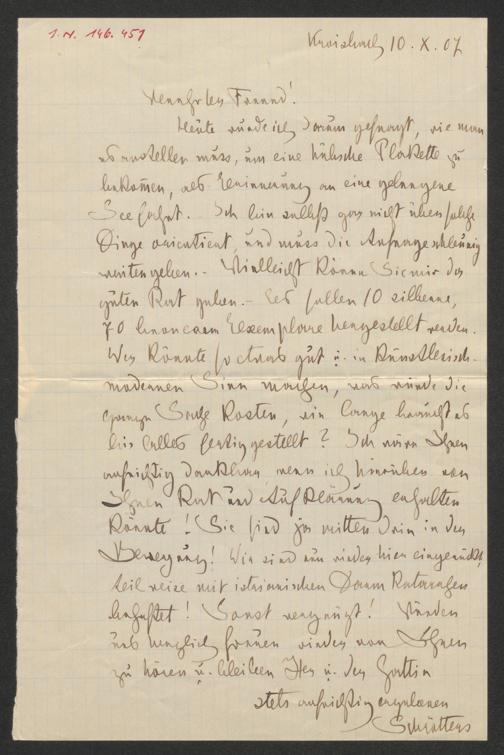 I.N. 146.451
Kroisbach 10. X. 07
Verehrter Freund!
Heute wurde ich darum gefragt, wie man
es anstellen muss, um eine hübsche Plakette zu
bekom̄en, als Erinnerung an eine gelungene
Seefahrt. Ich bin selbst gar nicht über solche
Dinge orientiert, und muss die Anfrage schleunig
weitergeben. - Vielleicht können Sie mir da
guten Rat geben. - Es sollen 10 silberne,
70 bronzene Exemplare hergestellt werden.
Wer könnte so etwas gut u. in künstlerisch
modernen Sinn machen, was würde die
ganze Sache kosten, wie lange braucht es
bis alles fertig gestellt? Ich wäre Ihnen
aufrichtig dankbar wenn ich hierüber von
Ihnen Rat und Aufklärung erhalten
könnte! Sie sind ja mitten drin in der
Bewegung! Wir sind nun wieder hier eingerückt,
teilweise mit istrianischen Darm Katarrhen
behaftet! Sonst vergnügt! Würden
uns herzlich freuen wieder von Ihnen
zu hören u. bleiben Ihr u. der Gattin
stets aufrichtig ergebenen